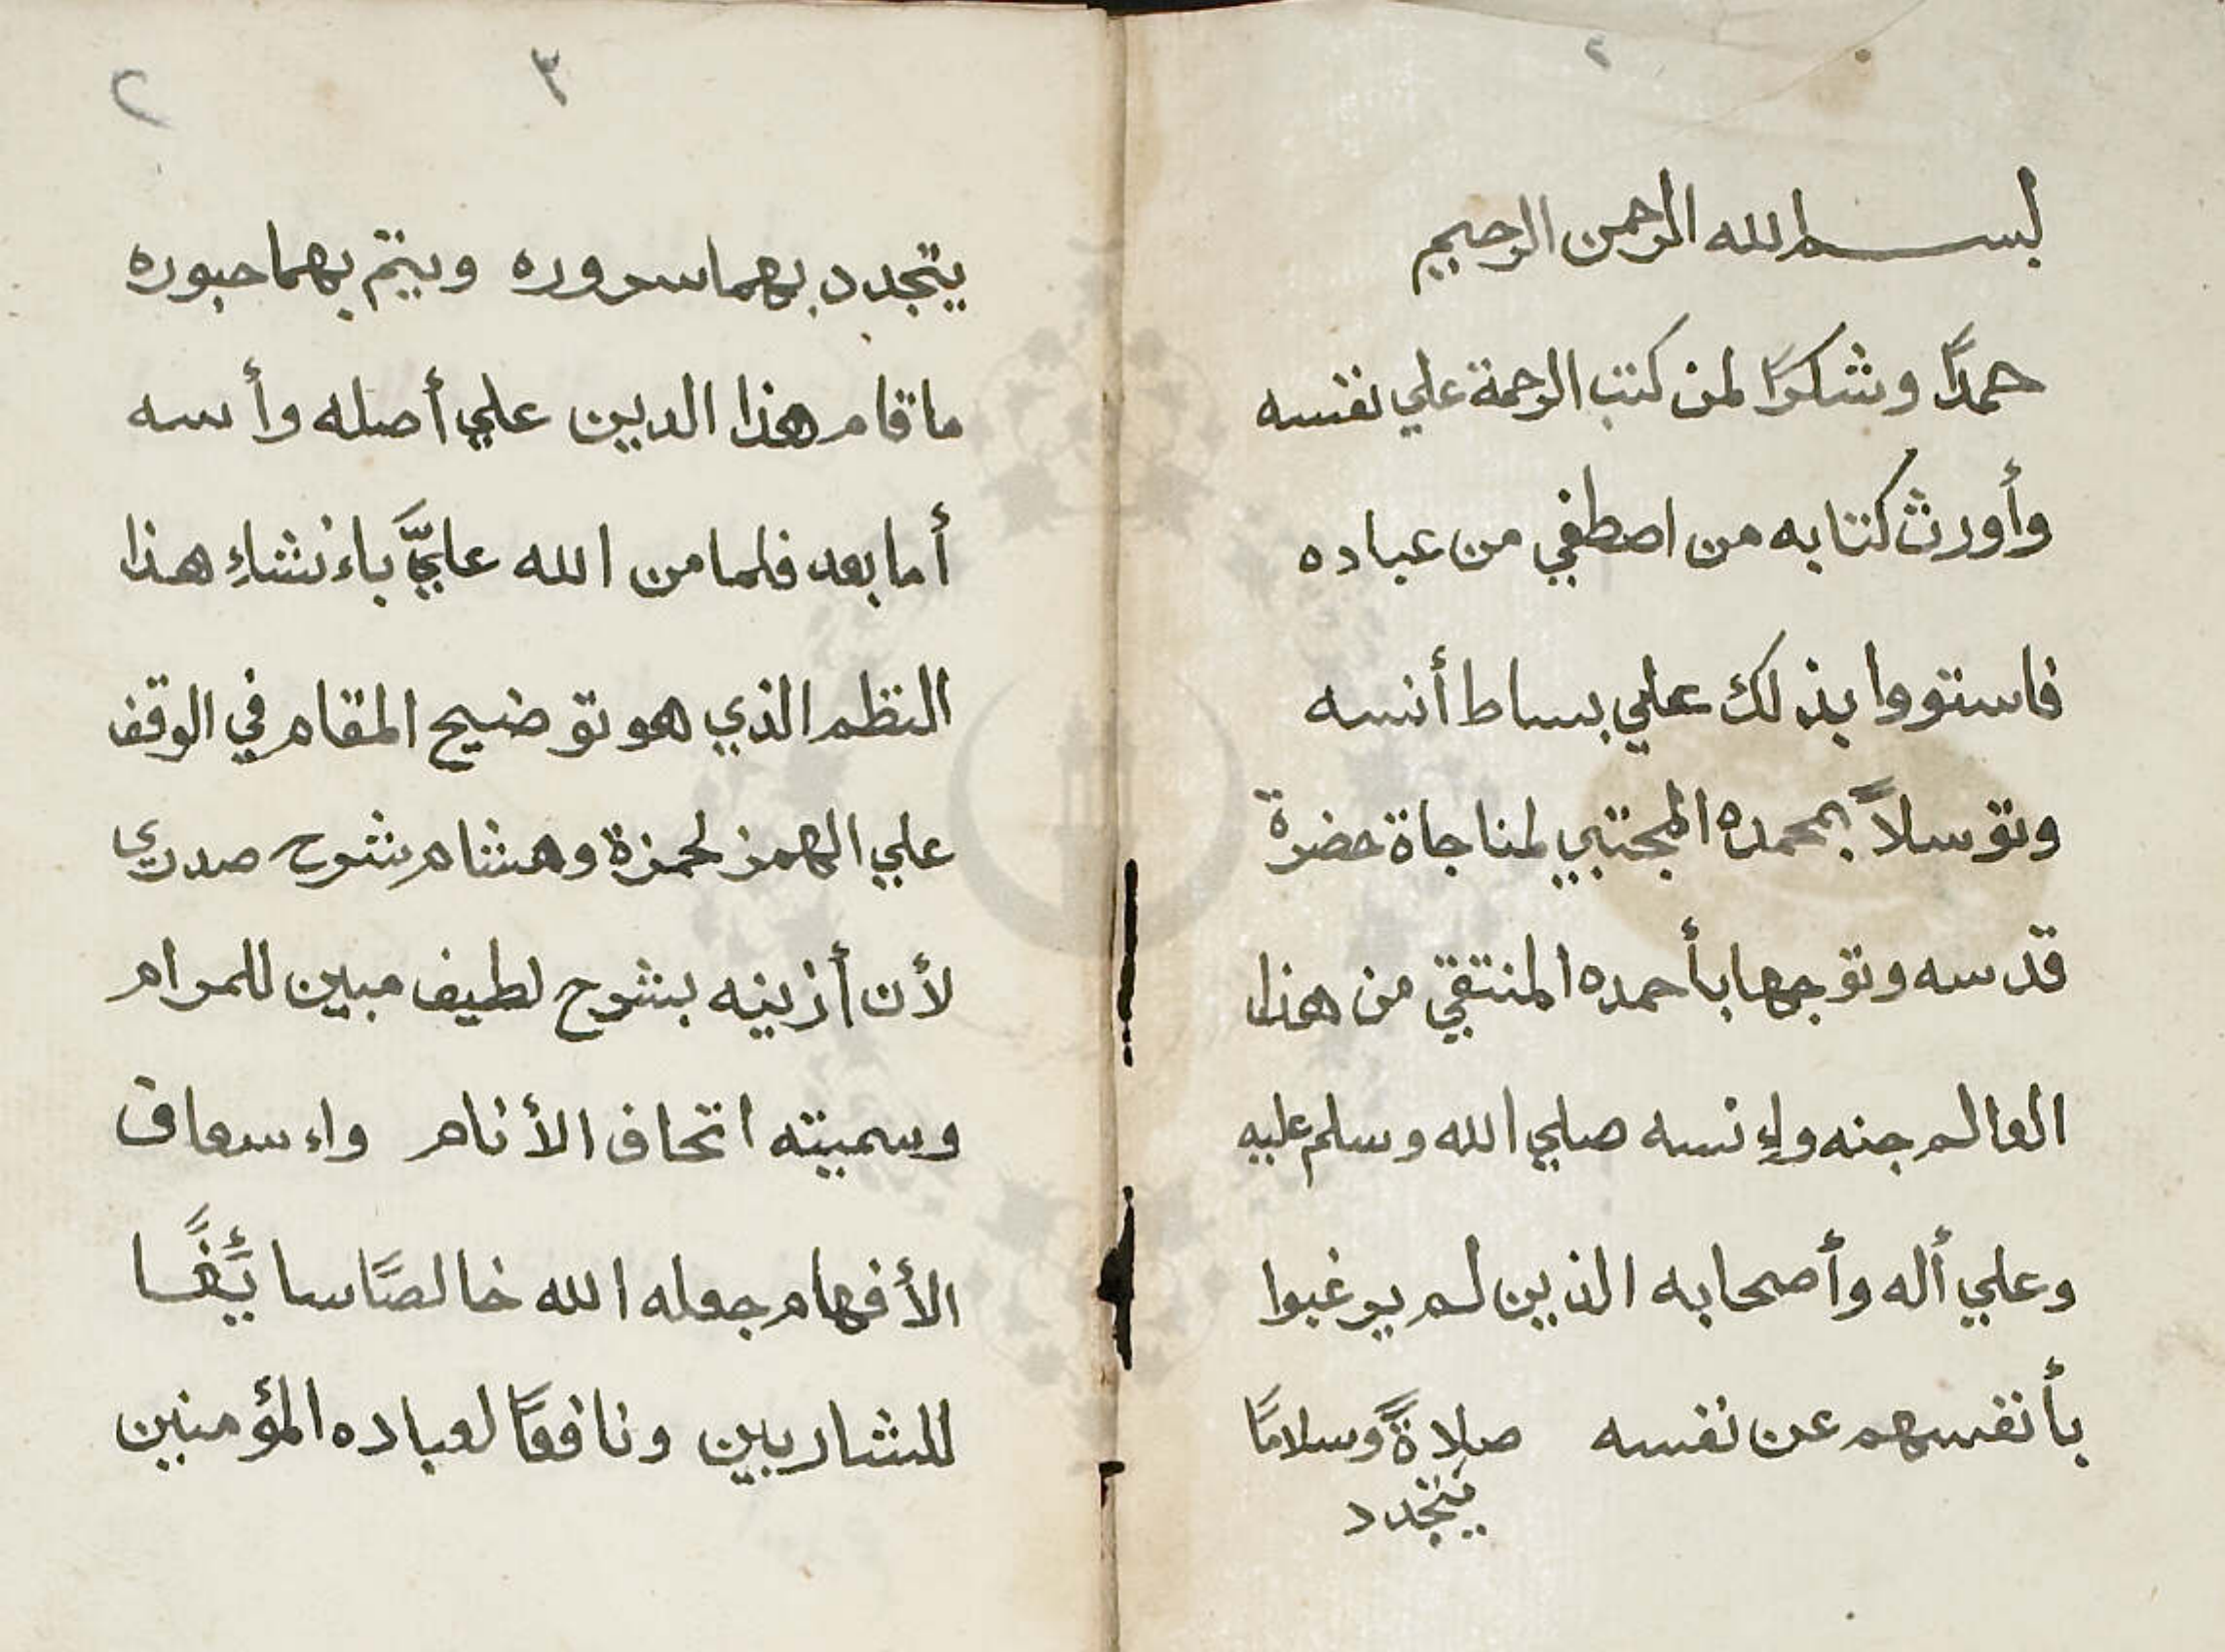 ٢
بسم الله الرحمن الرحيم
حمدًا وشكرًا لمن كتب الرحمة علي نفسه
وأورث كتابه من اصطفي من عباده
فاستووا بذلك علي بساط أنسه
وتوسلاً بمحمده المجتبي لمناجاة حضرة
قدسه وتوجها بأحمده المنتقي من هذا
العالم جنه وإنسه صلي الله وسلم عليه
وعلي أله وأصحابه الذين لم يرغبوا
بأنفسهم عن نفسه صلاةً وسلامًا
يتجدد
٣
٢
يتجدد بهما سروره ويتم بهما حبوره
ما قام هذا الدين علي أصله وأسه
أما بعد فلما من الله عليَّ بإنشاءِ هذا
النظم الذي هو توضيح المقام في الوقف
علي الهمز لحمزة وهشام شرح صدري
لأن أزينه بشرح لطيف مبين للمرام
وسميته اتحاف الأنام وإسعاف
الأفهام جعله الله خالصًا سائغًا
للشاربين ونافعًا لعباده المؤمنين